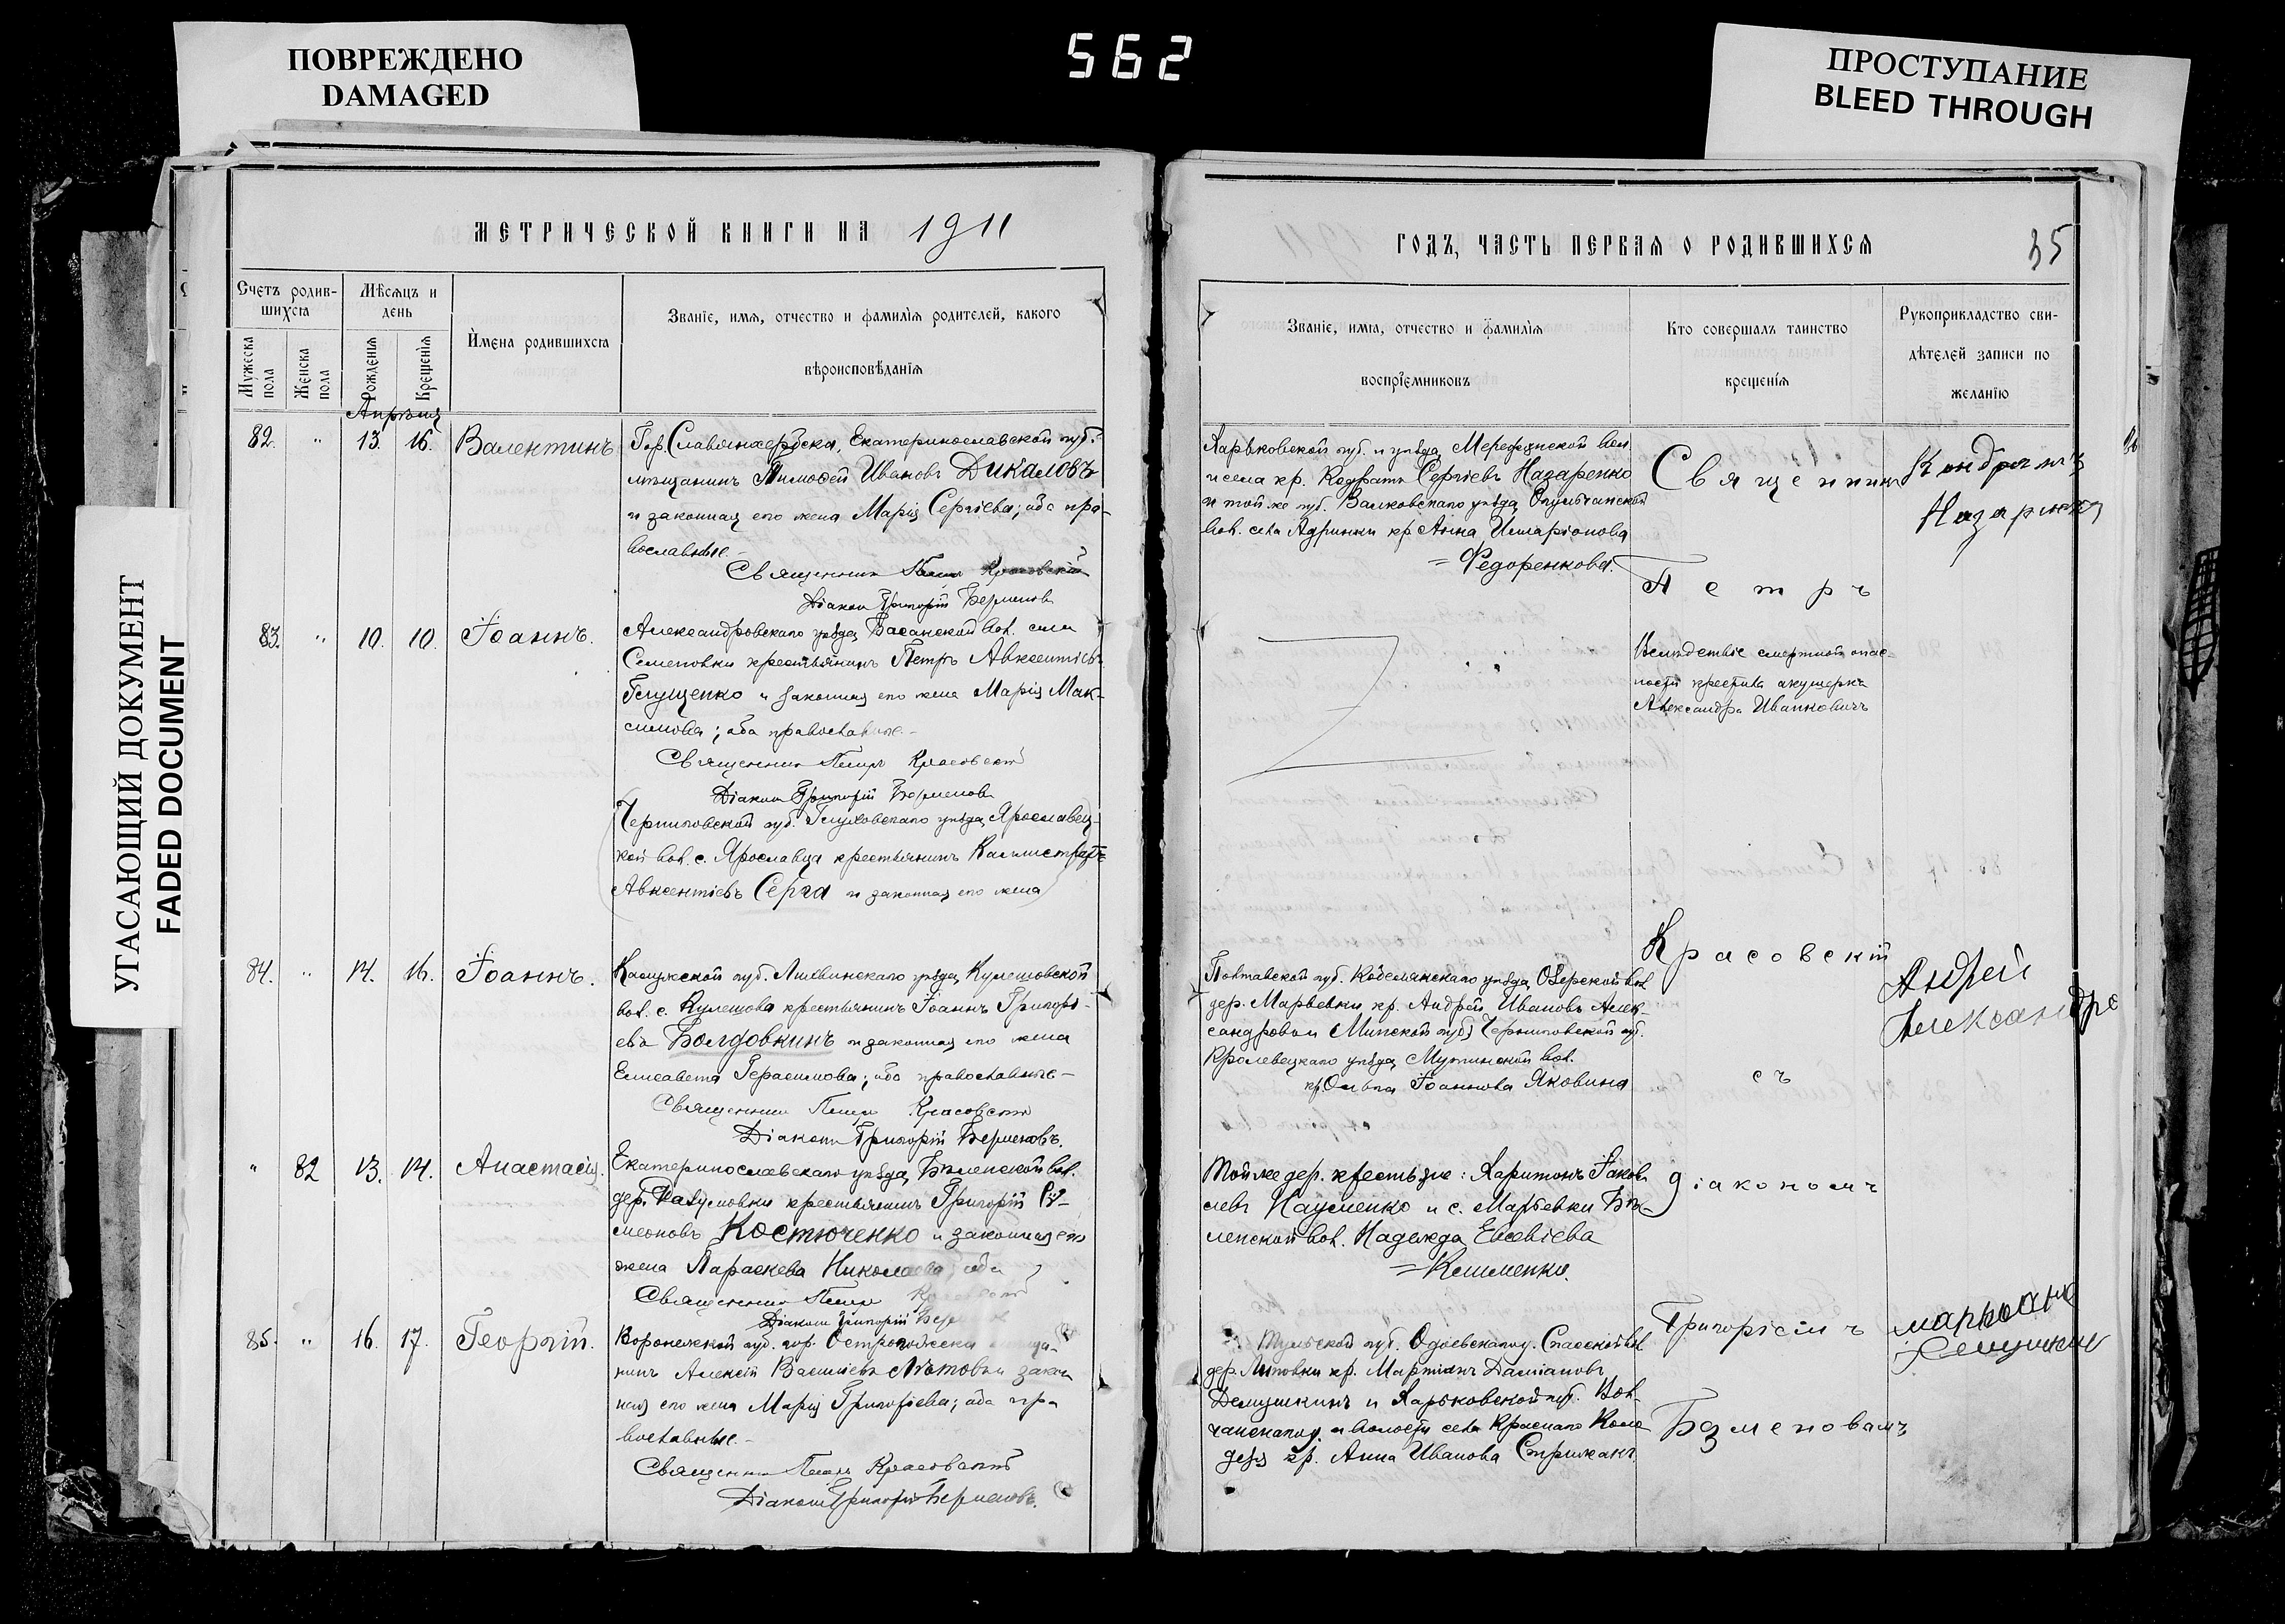 ПОВРЕЖДЕНО
DAMAGED
562
ПРОСТУПАНИЕ
BLEED THROUGH
УГАСАЮЩИЙ ДОКУМЕНТ
FADED DOCUMENT
МЕТРИЧЕСКОЙ КНИГИ НА 1911
Счетъ родив-
шихся
Мѣсяцъ и
день
Имена родившихся
Званіе, имя, отчество и фамилія родителей, какого
вѣроисповѣданія
Мужеска
пола
Женска
пола
Рожденія
Крещенія
Апрѣля
82. " 13. 16. Валентинъ
Гор. Славяносербска, Екатеринославской губ.
мѣщанинъ Тимофей Ивановъ Дикаловъ
и законная его жена Марія Сергіева; оба пра-
вославные.
Священникъ Петръ Красовскій
Діаконъ Григорій
83. " 10. 10. Іоаннъ.
Александровскаго уѣзда, Басанской вол. села
Семеновки крестьянинъ Петръ Авксентіевъ
Глущенко и законная его жена Марія Мак-
симова; оба православные.
Священникъ Петръ Красовскій
Діаконъ Григорій
Черниговской губ. Глуховскаго уѣзда, Ярославец-
кой вол. с. Ярославца крестьянинъ Каллистратъ
Авксентіевъ Серга и законная его жена
84. " 14. 16. Іоаннъ.
Калужской губ. Лихвинскаго уѣзда, Кулешовской
вол. с. Кулешова крестьянинъ Іоаннъ Григорі-
евъ Болдовкинъ и законная его жена
Елисавета Герасимова; оба православные
Священникъ Петръ Красовскій
Діаконъ Григорій
" 82 13. 14. Анастасія.
Екатеринославскаго уѣзда, Бѣленской вол.
дер. крестьянинъ Григорій Си-
меоновъ Костюченко и законная его
жена Параскева Николаева; оба
Священникъ Петръ
Діаконъ Григорій
85. " 16. 17. Георгій.
Воронежской губ. гор. Острогожска мѣща-
нинъ Алексій Василіевъ закон-
ная его жена Марія Григоріева; оба пра-
вославные.
Священникъ Петръ Красовскій
Діаконъ Григорій
ГОДЪ, ЧАСТЬ ПЕРВАЯ О РОДИВШИХСЯ
35
Званіе, имя, отчество и фамилія
воспріемниковъ
Кто совершалъ таинство
крещенія
Рукоприкладство сви-
дѣтелей записи по
желанію
Харьковской губ. и уѣзда, Мерефянской вол.
и села кр. Сергіевъ Назаренко
и той же губ. Валковскаго уѣзда,
вол. села кр. Анна Иларіонова
Федоренкова.
Священникъ
Петръ
Вслѣдствіе смертной опас-
ности крестила акушерка
Александра Иванковичъ
Полтавской губ. Кобелякскаго уѣзда, Озерской вол.
дер. Марьевки кр. Андрей Ивановъ Алек-
сандровъ и Черниговской губ.
Кролевецкаго уѣзда, Мутинской вол.
кр. Ольга Іоаннова Яковина
Красовскій
съ
Андрей
Александро
Той же дер. крестьяне: Харитонъ Іаков-
левъ Науменко и с. Марьевки Бѣ-
ленской вол. Надежда Евсевіева
Клименко.
діакономъ
Тульской губ. Одоевскаго у. Спасской вол.
дер. кр. Даміановъ
Демушкинъ и Харьковской губ. Вол-
чанскаго у. и волости села Краснаго Коло-
дезя кр. Анна Иванова Стрижакъ.
Григоріемъ